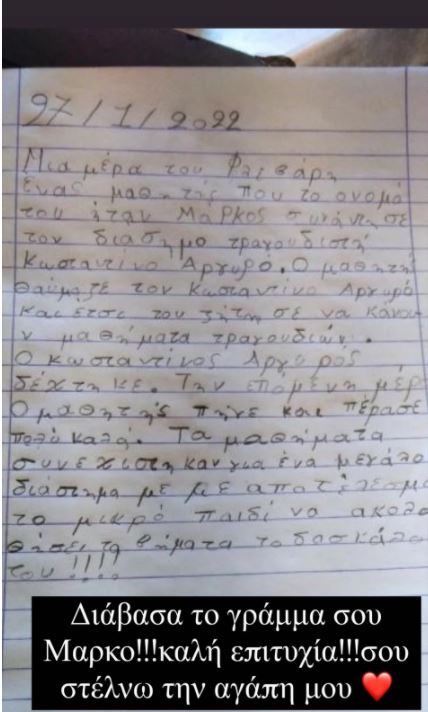 27/1/2022
Μια μέρα του Φλεβάρη
ένας μαθητής που το ονομά
του ήταν Μάρκος συνάντησε
τον διάσημο τραγουδιστή
Κωσταντίνο Αργυρό. Ο μαθητή
θαύμαζε τον Κωσταντίνο Αργυρό
και έτσι του ζήτησε να κάνου
ν μαθήματα τραγουδιών.
Ο κωσταντίνος Αργυρος
δέχτηκε. Την επόμενη μέρ
Ο μαθητής πήγε και πέρασε
πολύ καλά. Τα μαθήματα
συνεχιστηκαν για ένα μεγάλο
διάστημα με με αποτέλεσμα
το μικρό παιδί να ακολο
θήσει τα βήματα το δασκάλο
του!!!!
Διάβασα το γράμμα σου
Μαρκο!!!καλή επιτυχία!!!σου
στέλνω την αγάπη μου ❤️